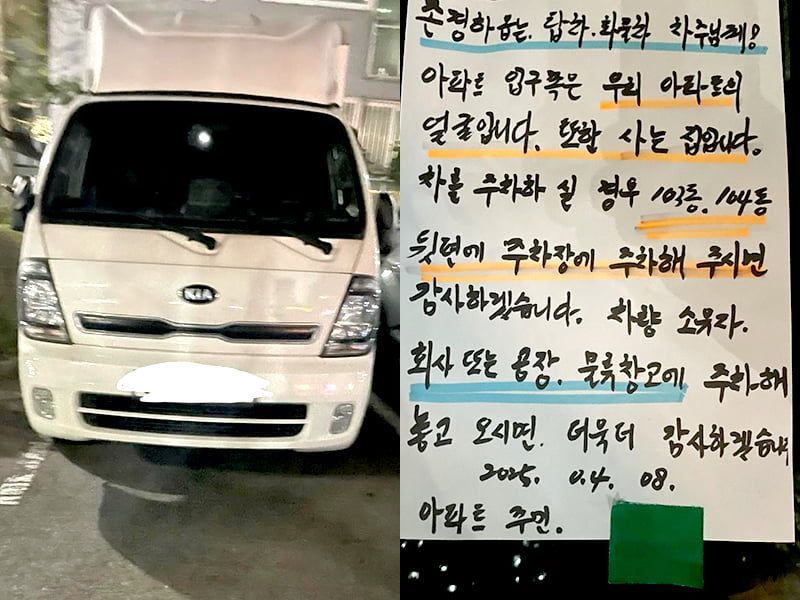 KIA
존경하옵는. 탑차. 화물차 차주님께!
아파트 입구쪽은 우리 아파트의
얼굴입니다. 또한 사는 집입니다.
차를 주차하실 경우 103동. 104동
뒷편에 주차장에 주차해 주시면
감사하겠습니다. 차량 소유자.
회사 또는 공장. 물류창고에 주차해
놓고 오시면. 더욱더 감사하겠습니다
2025. 0.4. 08.
아파트 주민.